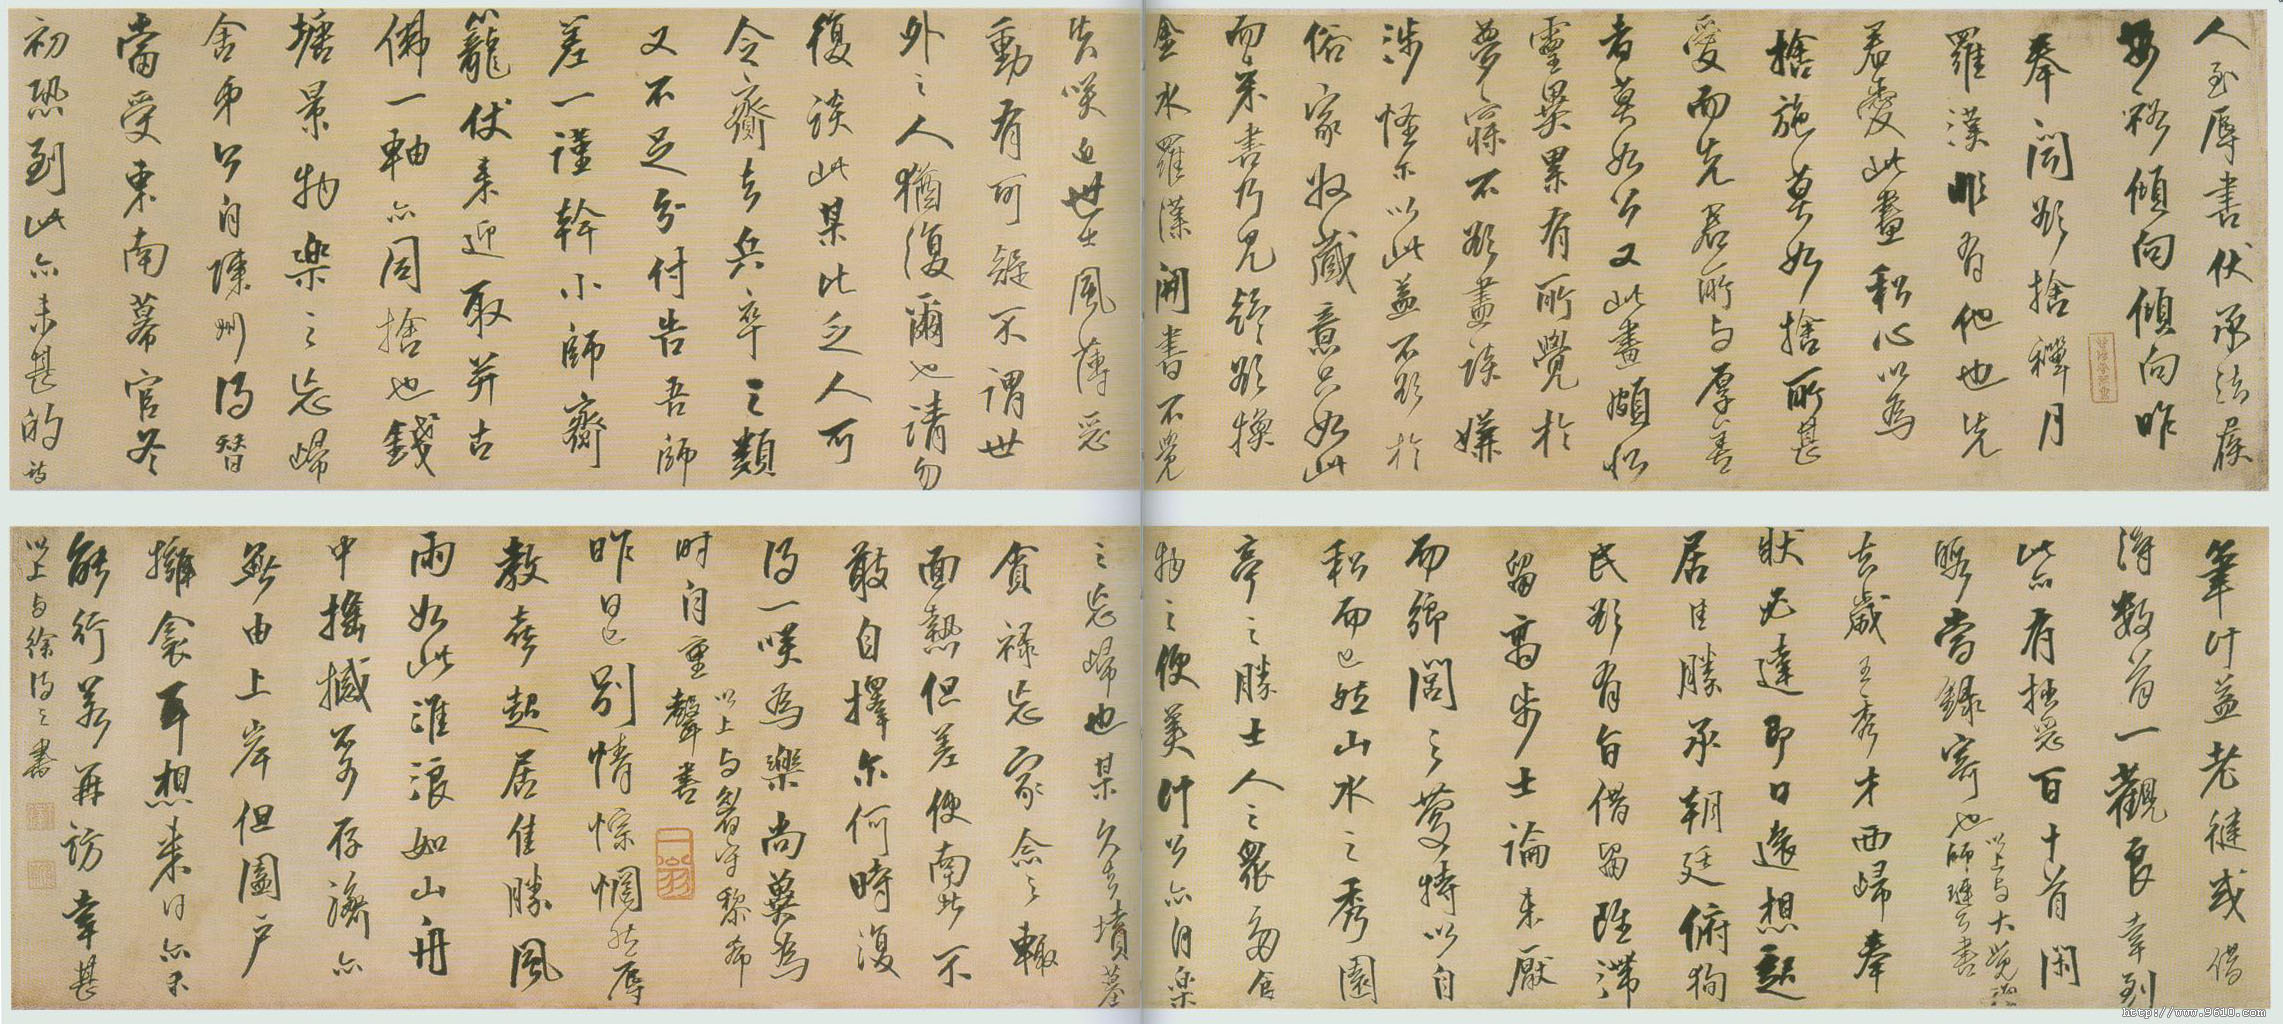 人至辱書伏承法履
安裕傾向傾向昨
奉聞欲捨禪月
羅漢非有他也先
君愛此畫私心以為
捨施莫如捨所甚
愛而先君所與厚善
者莫如公又此畫頗似
靈異累有所覺於
夢寐不欲盡談嫌
涉怪尔以此益不欲於
俗家收藏意只如此
而來書乃見疑欲換
金水羅漢開書不覺
失笑近世士風薄惡
動有可疑不謂世
外之人猶復爾也請勿
復談此某比乏人可
令齎去兵卒之類
又不足分付告吾師
差一謹幹小師齎
籠仗來迎取并古
佛一軸亦同捨也錢
塘景物樂之忘歸
舍弟今自陳州得替
當受東南幕官冬
初恐到此亦未甚的詩
筆計益老健或借
得數首一觀良幸到
此亦有拙惡百十首閑
暇當錄寄也
以上與大覺禪
師璉公書
去歲王秀才西歸奉
狀必達即日遠想起
居佳勝承朝廷俯徇
民欲有旨借留既滯
留高步士論未厭
而鄉閭之慶特以自
私而已然山水之秀園
亭之勝士人之眾多食
物之便美計公亦自樂
之忘歸也某久去墳墓
貪祿忘家念之輒
面熱但差使南北不
敢自擇尔何時復
得一笑為樂尚冀為
時自重
以上與眉守黎希
聲書
昨日已別情悰惘然辱
教喜起居佳勝風
雨如此淮浪如山舟
中搖撼不可存濟亦
無由上岸但闔戶
擁衾耳想來日亦未
能行若再訪幸甚
以上與徐得之書
一翁
http://www.9610.com